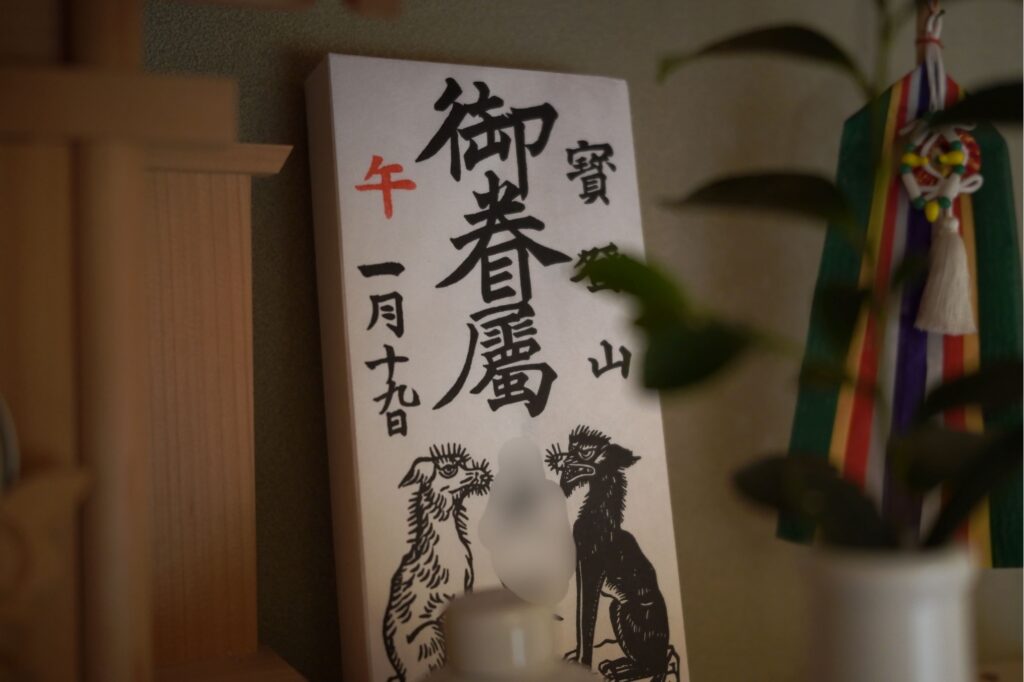 寶登山
御眷屬
午
一月十九日